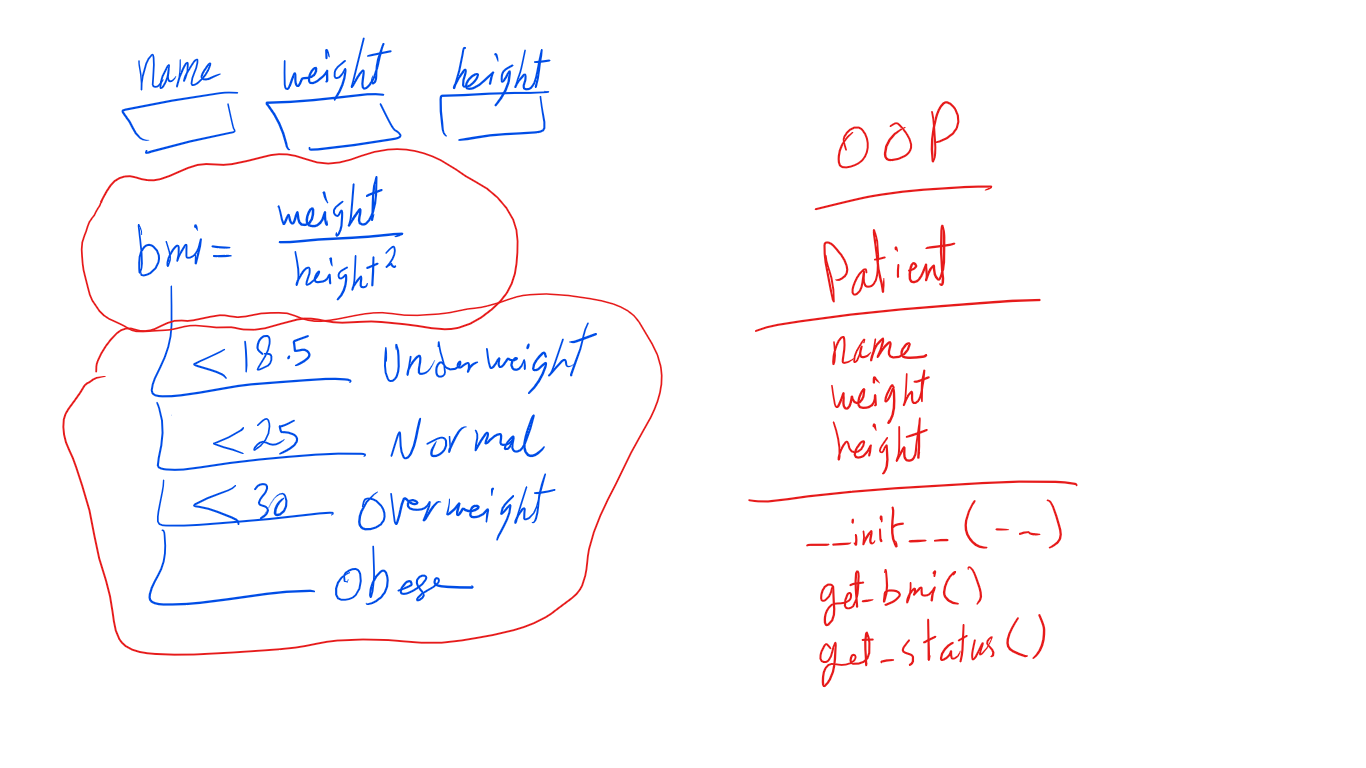 name weight height
bmi = weight / height²
< 18.5 Underweight
< 25 Normal
< 30 Overweight
Obese
OOP
Patient
name
weight
height
__init__(--)
get_bmi()
get_status()